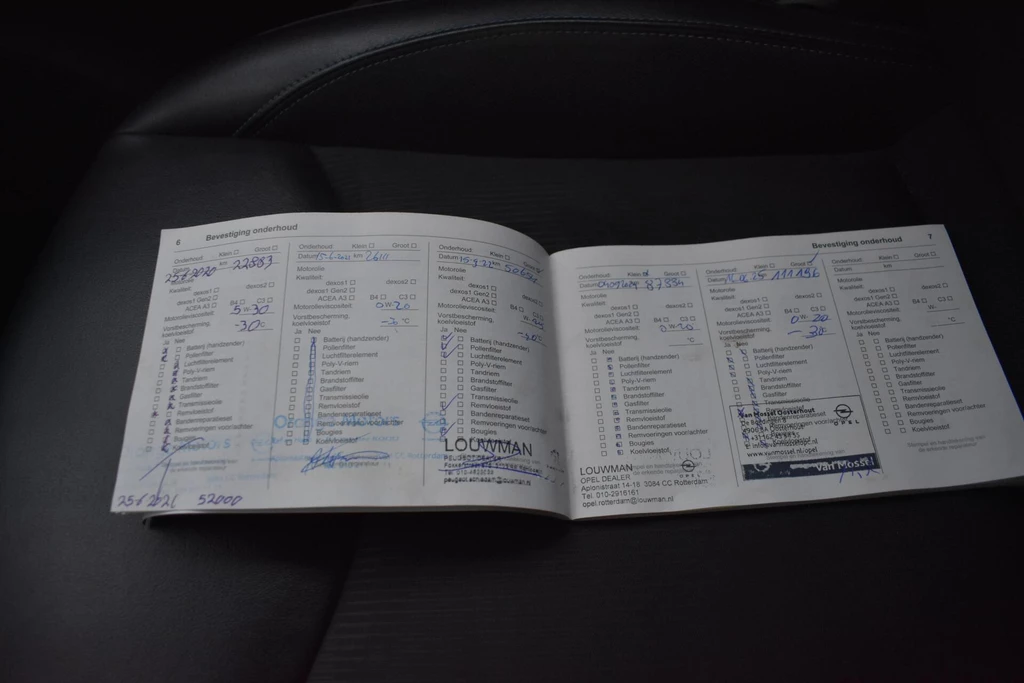 6 Bevestiging onderhoud
Onderhoud: Klein Groot
Datum 25-6-2020 km 22883
Motorolie
Kwaliteit:
dexos1
dexos2
dexos1 Gen2
ACEA A3 B4 C3
Motorolieviscositeit: 5 W-30
Vorstbescherming,
koelvloeistof -30 °C
Ja Nee
Batterij (handzender)
Pollenfilter
Luchtfilterelement
Poly-V-riem
Tandriem
Brandstoffilter
Gasfilter
Transmissieolie
Remvloeistof
Bandenreparatieset
Remvoeringen voor/achter
Bougies
Koelvloeistof
25-6-2021 52000
Onderhoud: Klein Groot
Datum km
Motorolie
Kwaliteit:
dexos1
dexos2
dexos1 Gen2
ACEA A3 B4 C3
Motorolieviscositeit: 0 W-20
Vorstbescherming,
koelvloeistof °C
Ja Nee
Batterij (handzender)
Pollenfilter
Luchtfilterelement
Poly-V-riem
Tandriem
Brandstoffilter
Gasfilter
Transmissieolie
Remvloeistof
Bandenreparatieset
Remvoeringen voor/achter
Bougies
Koelvloeistof
Onderhoud: Klein Groot
Datum km
Motorolie
Kwaliteit:
dexos1
dexos2
dexos1 Gen2
ACEA A3 B4 C3
Motorolieviscositeit:
Vorstbescherming,
koelvloeistof
Ja Nee
Batterij (handzender)
Pollenfilter
Luchtfilterelement
Poly-V-riem
Tandriem
Brandstoffilter
Gasfilter
Transmissieolie
Remvloeistof
Bandenreparatieset
Remvoeringen voor/achter
Bougies
LOUWMAN
Bevestiging onderhoud 7
Onderhoud: Klein Groot
Datum km 87384
Motorolie
Kwaliteit:
dexos1
dexos2
dexos1 Gen2
ACEA A3 B4 C3
Motorolieviscositeit: 0 W-20
Vorstbescherming,
koelvloeistof °C
Ja Nee
Batterij (handzender)
Pollenfilter
Luchtfilterelement
Poly-V-riem
Tandriem
Brandstoffilter
Gasfilter
Transmissieolie
Remvloeistof
Bandenreparatieset
Remvoeringen voor/achter
Bougies
Koelvloeistof
LOUWMAN
OPEL DEALER
OPEL
Aploniastraat 14-16 3084 CC Rotterdam
Tel. 010-2916161
opel.rotterdam@louwman.nl
Onderhoud: Klein Groot
Datum km 111196
Motorolie
Kwaliteit:
dexos1
dexos2
dexos1 Gen2
ACEA A3 B4 C3
Motorolieviscositeit: 0 W-20
Vorstbescherming,
koelvloeistof
Ja Nee
Batterij (handzender)
Pollenfilter
Luchtfilterelement
Poly-V-riem
Tandriem
Brandstoffilter
Gasfilter
Transmissieolie
Van Mossel Oosterhout
OPEL
www.vanmossel.nl/opel
Van Mossel
Onderhoud: Klein Groot
Datum km
Motorolie
Kwaliteit:
dexos1
dexos2
dexos1 Gen2
ACEA A3 B4 C3
Motorolieviscositeit: W-
Vorstbescherming,
koelvloeistof °C
Ja Nee
Batterij (handzender)
Pollenfilter
Luchtfilterelement
Poly-V-riem
Tandriem
Brandstoffilter
Gasfilter
Transmissieolie
Remvloeistof
Bandenreparatieset
Remvoeringen voor/achter
Bougies
Koelvloeistof